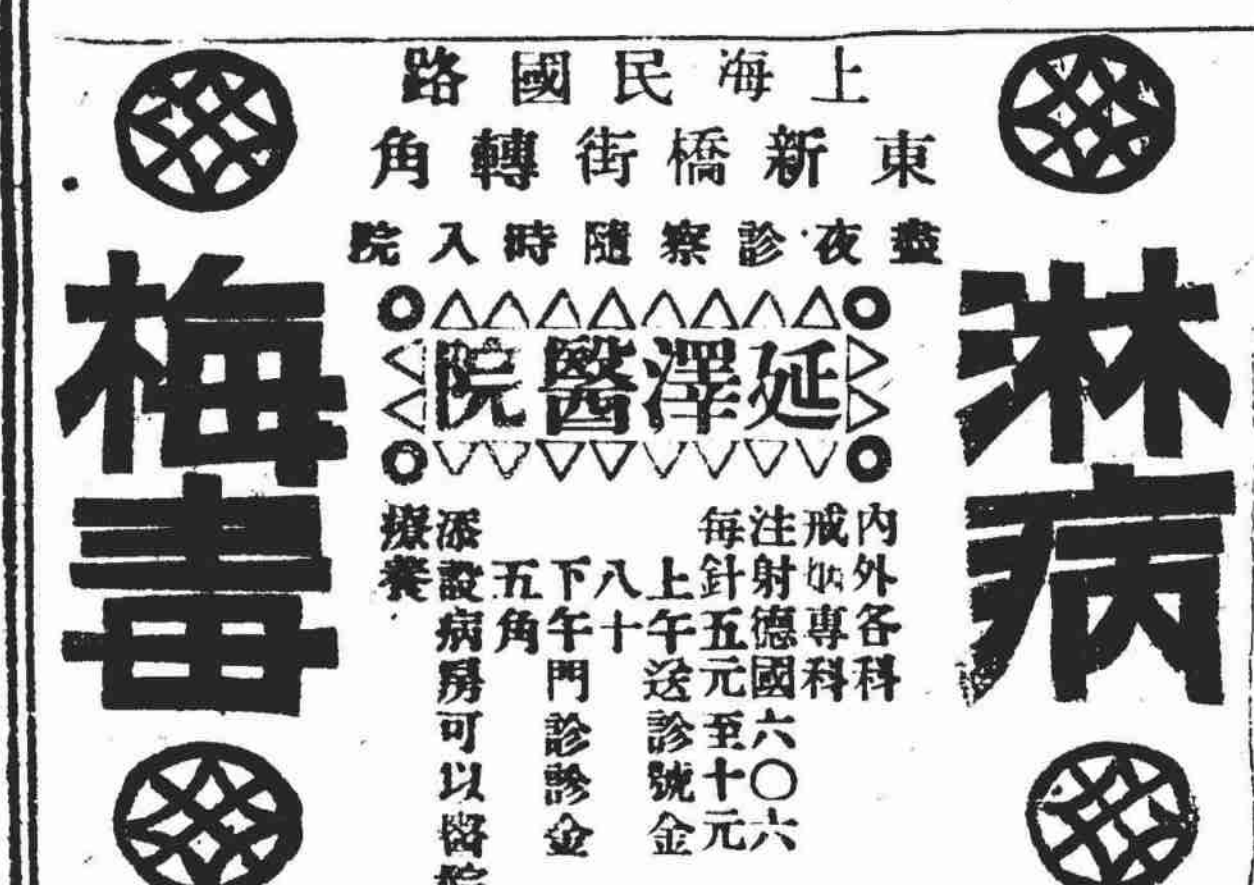 淋病
上海民國路
東新橋街轉角
盡夜診察隨時入院
延澤醫院
內外各科
戒烟專科
注射德國六〇六
每針五元至十元
上午送診號金
八十
下午門診診金
五角
添設病房可以留院
療養
梅毒